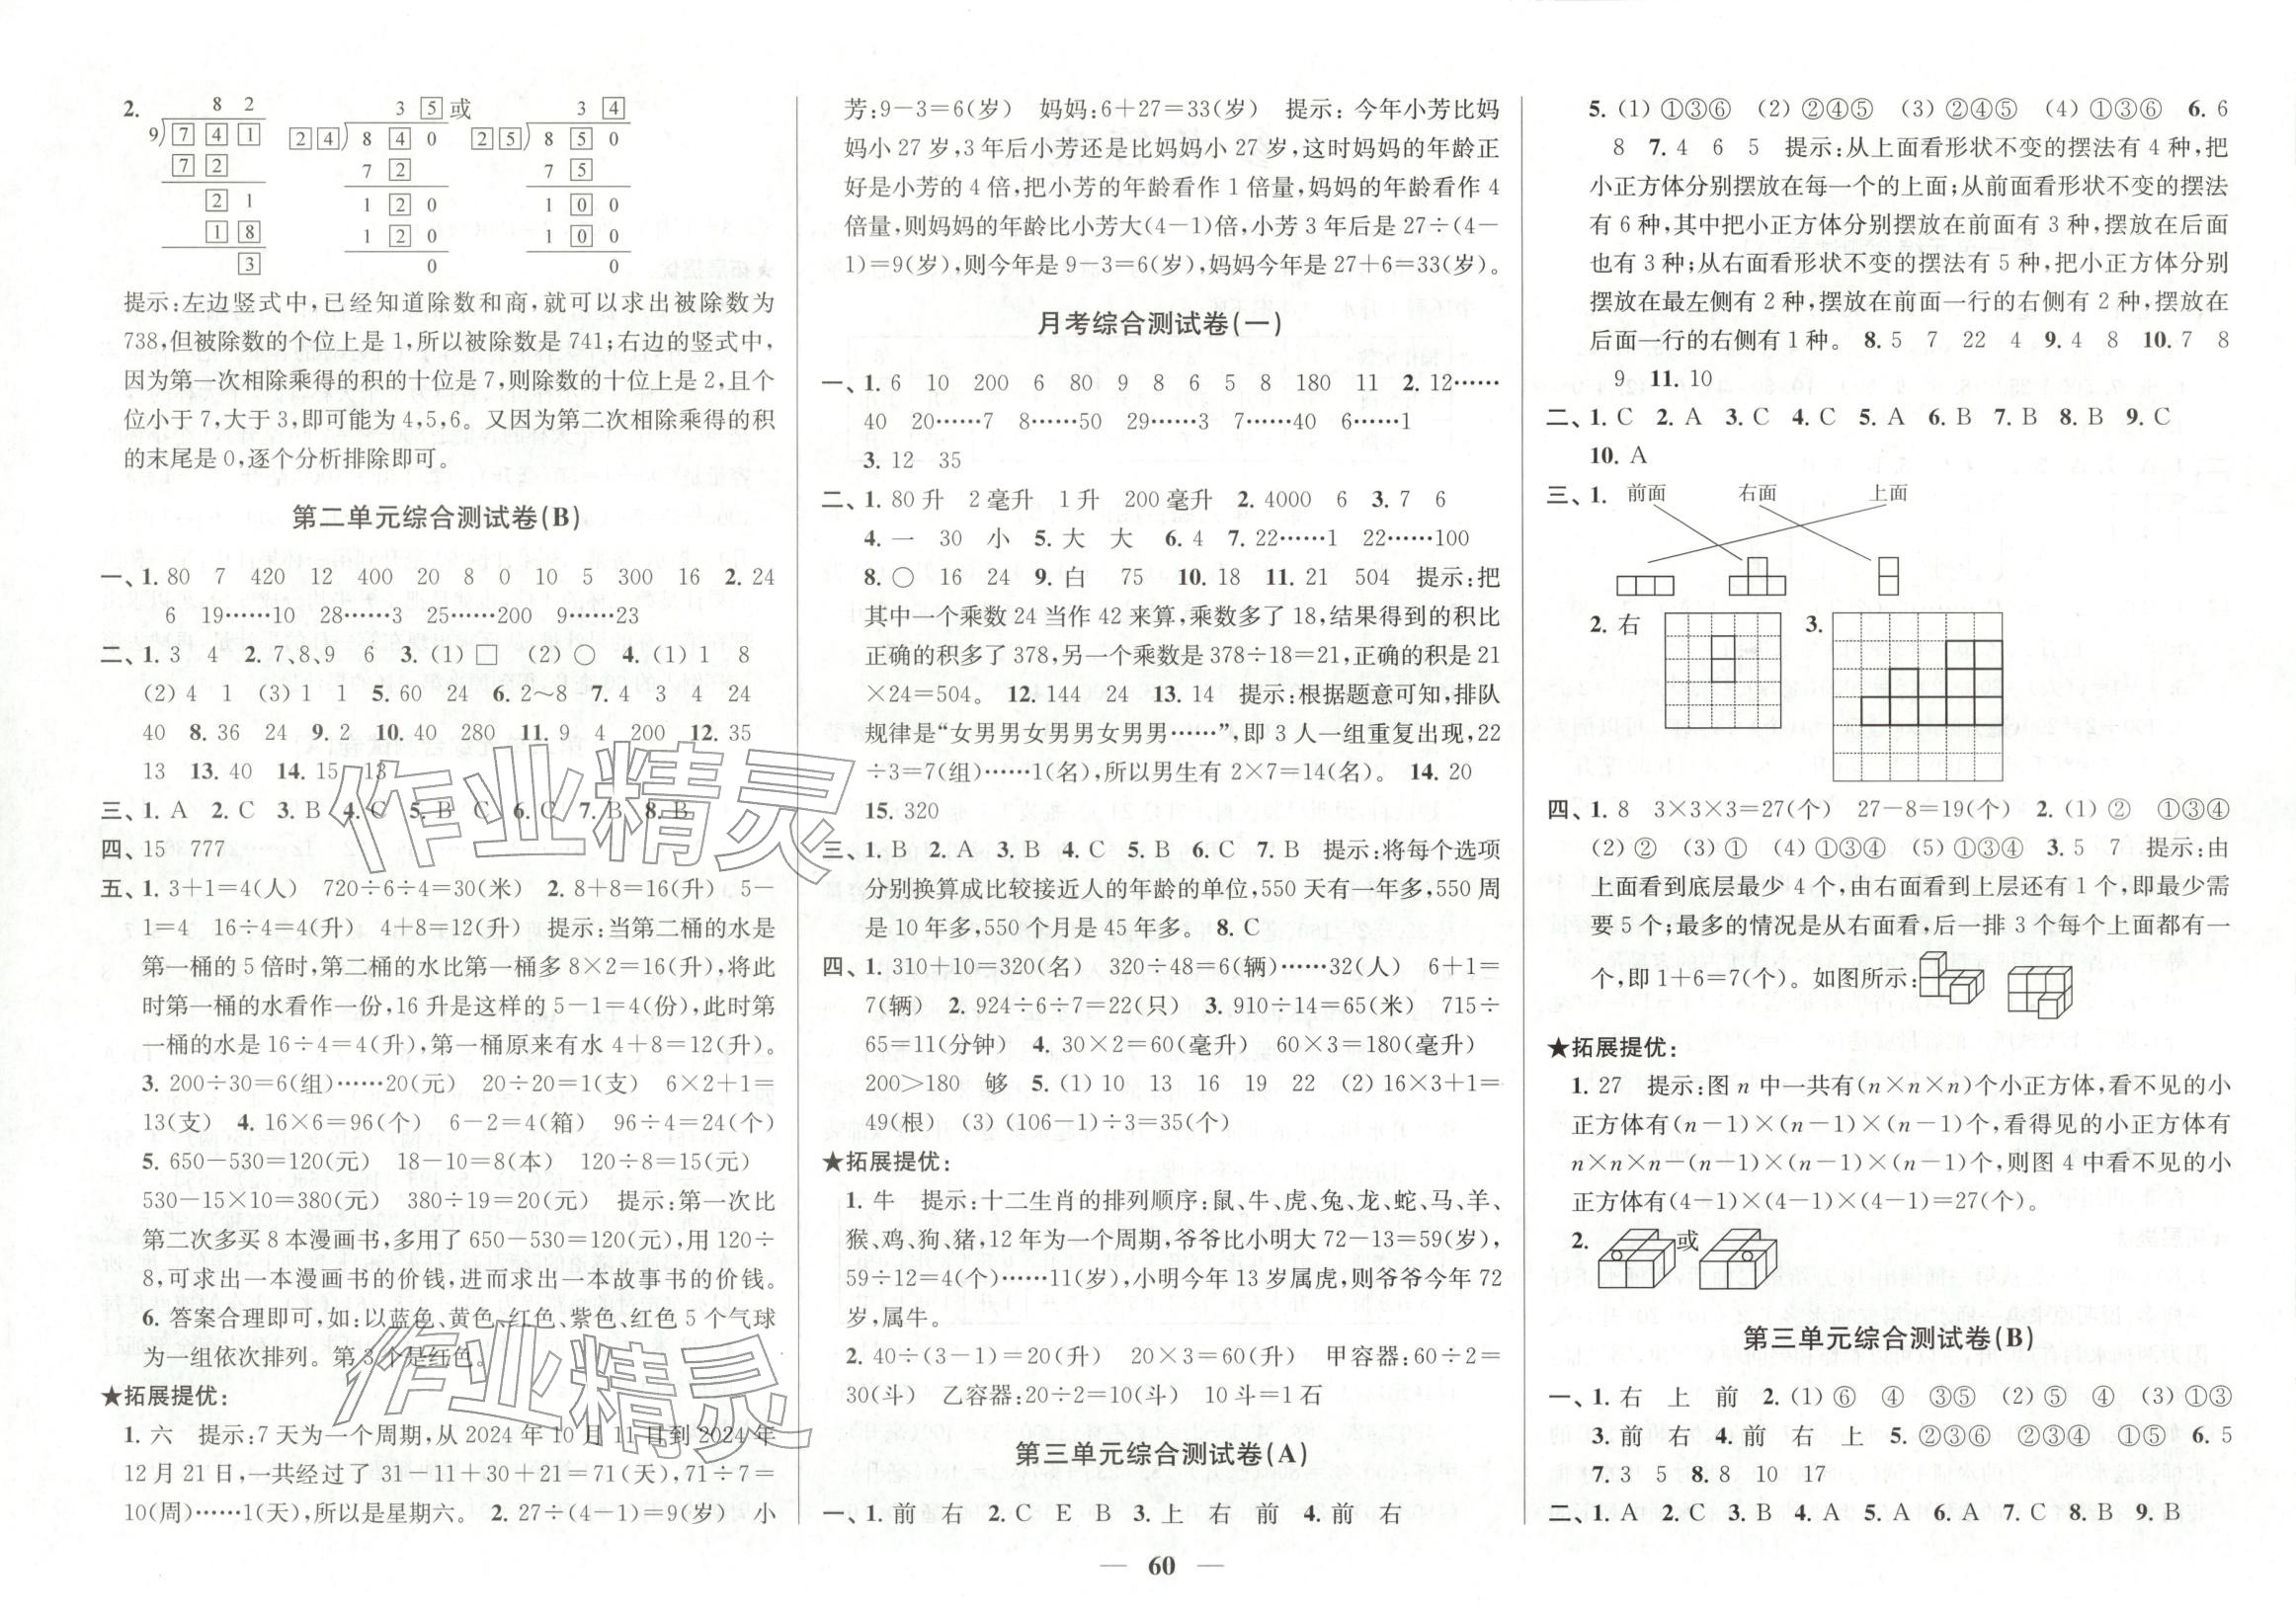 2.
8 2
9 7 4 1
7 2
2 1
1 8
3
3 5 或
2 4 8 4 0
7 2
1 2 0
1 2 0
0
3 4
2 5 8 5 0
7 5
1 0 0
1 0 0
0
提示:左边竖式中,已经知道除数和商,就可以求出被除数为
738,但被除数的个位上是1,所以被除数是741;右边的竖式中,
因为第一次相除乘得的积的十位是7,则除数的十位上是2,且个
位小于7,大于3,即可能为4,5,6。又因为第二次相除乘得的积
的末尾是0,逐个分析排除即可。
第二单元综合测试卷(B)
一、1. 80 7 420 12 400 20 8 0 10 5 300 16 2. 24
6 19……10 28……3 25……200 9……23
二、1. 3 4 2. 7、8、9 6 3. (1)□ (2)○ 4. (1)1 8
(2)4 1 (3)1 1 5. 60 24 6. 2~8 7. 4 3 4 24
40 8. 36 24 9. 2 10. 40 280 11. 9 4 200 12. 35
13 13. 40 14. 15 13
三、1. A 2. C 3. B 4. C 5. B C 6. C 7. B 8. B
四、15 777
五、1. 3+1=4(人) 720÷6÷4=30(米) 2. 8+8=16(升) 5-
1=4 16÷4=4(升) 4+8=12(升) 提示:当第二桶的水是
第一桶的5倍时,第二桶的水比第一桶多8×2=16(升),将此
时第一桶的水看作一份,16升是这样的5-1=4(份),此时第
一桶的水是16÷4=4(升),第一桶原来有水4+8=12(升)。
3. 200÷30=6(组)……20(元) 20÷20=1(支) 6×2+1=
13(支) 4. 16×6=96(个) 6-2=4(箱) 96÷4=24(个)
5. 650-530=120(元) 18-10=8(本) 120÷8=15(元)
530-15×10=380(元) 380÷19=20(元) 提示:第一次比
第二次多买8本漫画书,多用了650-530=120(元),用120÷
8,可求出一本漫画书的价钱,进而求出一本故事书的价钱。
6. 答案合理即可,如:以蓝色、黄色、红色、紫色、红色5个气球
为一组依次排列。第3个是红色。
★拓展提优:
1. 六 提示:7天为一个周期,从2024年10月11日到2024年
12月21日,一共经过了31-11+30+21=71(天),71÷7=
10(周)……1(天),所以是星期六。 2. 27÷(4-1)=9(岁) 小
芳:9-3=6(岁) 妈妈:6+27=33(岁) 提示:今年小芳比妈
妈小27岁,3年后小芳还是比妈妈小27岁,这时妈妈的年龄正
好是小芳的4倍,把小芳的年龄看作1倍量,妈妈的年龄看作4
倍量,则妈妈的年龄比小芳大(4-1)倍,小芳3年后是27÷(4-
1)=9(岁),则今年是9-3=6(岁),妈妈今年是27+6=33(岁)。
月考综合测试卷(一)
一、1. 6 10 200 6 80 9 8 6 5 8 180 11 2. 12……
40 20……7 8……50 29……3 7……40 6……1
3. 12 35
二、1. 80升 2毫升 1升 200毫升 2. 4000 6 3. 7 6
4. 一 30 小 5. 大 大 6. 4 7. 22……1 22……100
8. ○ 16 24 9. 白 75 10. 18 11. 21 504 提示:把
其中一个乘数24当作42来算,乘数多了18,结果得到的积比
正确的积多了378,另一个乘数是378÷18=21,正确的积是21
×24=504。 12. 144 24 13. 14 提示:根据题意可知,排队
规律是“女男男女男男女男男……”,即3人一组重复出现,22
÷3=7(组)……1(名),所以男生有2×7=14(名)。 14. 20
15. 320
三、1. B 2. A 3. B 4. C 5. B 6. C 7. B 提示:将每个选项
分别换算成比较接近人的年龄的单位,550天有一年多,550周
是10年多,550个月是45年多。 8. C
四、1. 310+10=320(名) 320÷48=6(辆)……32(人) 6+1=
7(辆) 2. 924÷6÷7=22(只) 3. 910÷14=65(米) 715÷
65=11(分钟) 4. 30×2=60(毫升) 60×3=180(毫升)
200>180 够 5. (1)10 13 16 19 22 (2)16×3+1=
49(根) (3)(106-1)÷3=35(个)
★拓展提优:
1. 牛 提示:十二生肖的排列顺序:鼠、牛、虎、兔、龙、蛇、马、羊、
猴、鸡、狗、猪,12年为一个周期,爷爷比小明大72-13=59(岁),
59÷12=4(个)……11(岁),小明今年13岁属虎,则爷爷今年72
岁,属牛。
2. 40÷(3-1)=20(升) 20×3=60(升) 甲容器:60÷2=
30(斗) 乙容器:20÷2=10(斗) 10斗=1石
第三单元综合测试卷(A)
一、1. 前 右 2. C E B 3. 上 右 前 4. 前 右
5. (1)①③⑥ (2)②④⑤ (3)②④⑤ (4)①③⑥ 6. 6
8 7. 4 6 5 提示:从上面看形状不变的摆法有4种,把
小正方体分别摆放在每一个的上面;从前面看形状不变的摆法
有6种,其中把小正方体分别摆放在前面有3种,摆放在后面
也有3种;从右面看形状不变的摆法有5种,把小正方体分别
摆放在最左侧有2种,摆放在前面一行的右侧有2种,摆放在
后面一行的右侧有1种。 8. 5 7 22 4 9. 4 8 10. 7 8
9 11. 10
二、1. C 2. A 3. C 4. C 5. A 6. B 7. B 8. B 9. C
10. A
三、1. 前面 右面 上面
2. 右 3.
四、1. 8 3×3×3=27(个) 27-8=19(个) 2. (1)② ①③④
(2)② (3)① (4)①③④ (5)①③④ 3. 5 7 提示:由
上面看到底层最少4个,由右面看到上层还有1个,即最少需
要5个;最多的情况是从右面看,后一排3个每个上面都有一
个,即1+6=7(个)。如图所示:
★拓展提优:
1. 27 提示:图n中一共有(n×n×n)个小正方体,看不见的小
正方体有(n-1)×(n-1)×(n-1)个,看得见的小正方体有
n×n×n-(n-1)×(n-1)×(n-1)个,则图4中看不见的小
正方体有(4-1)×(4-1)×(4-1)=27(个)。
2. 或
第三单元综合测试卷(B)
一、1. 右 上 前 2. (1)⑥ ④ ③⑤ (2)⑤ ④ (3)①③
3. 前 右 4. 前 右 上 5. ②③⑥ ②③④ ①⑤ 6. 5
7. 3 5 8. 8 10 17
二、1. A 2. C 3. B 4. A 5. A 6. A 7. C 8. B 9. B
— 60 —
作业精灵
作业精灵